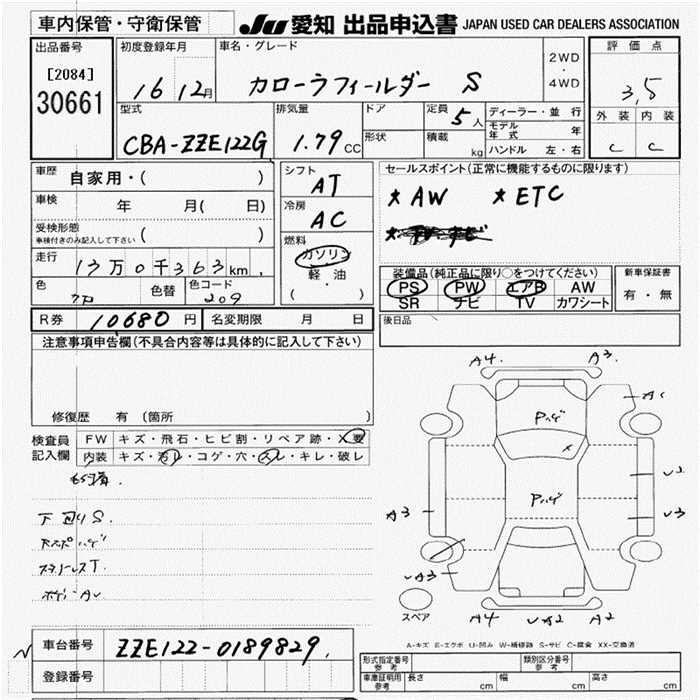 車内保管・守衛保管 JU 愛知 出品申込書 JAPAN USED CAR DEALERS ASSOCIATION
出品番号 初度登録年月 車名・グレード 評価点
[2084]
30661
16 12月 カローラフィールダー S 2WD・4WD 3,5
型式 排気量 ドア 定員 5人 ディーラー・並行 外装 内装
CBA-ZZE122G 1.79CC 形状 積載 kg モデル年式 年 C C
ハンドル 左・右
車歴 自家用・( ) シフト AT セールスポイント(正常に機能するものに限ります)
車検 年 月( 日) 冷房 AC ★AW ★ETC
受検形態 車検付きのみ記入して下さい ( ) 燃料 ガソリン
走行 13万0千363km 軽油
色 色替 色コード 209 (・)
装備品(純正品に限り○をつけてください) 新車保証書
PS PW エアB AW 有・無
SR ナビ TV カワシート
R券 10680円 名変期限 月 日 後日品
注意事項申告欄(不具合内容等は具体的に記入して下さい)
修復歴 有 (箇所 )
検査員記入欄 FW キズ・飛石・ヒビ割・リペア跡・X要
内装 キズ・汚レ・コゲ・穴・スレ・キレ・破レ
下回りS.
A4. A3.
A3
A3
A4 A2
スペア
A-キズ E-エクボ U-凹み W-補修跡 S-サビ C-腐食 XX-交換済
車台番号 ZZE122-0189829
登録番号
形式指定番号 参考 類別区分番号 参考
車庫証明用 参考 長さ cm 幅 cm 高さ cm